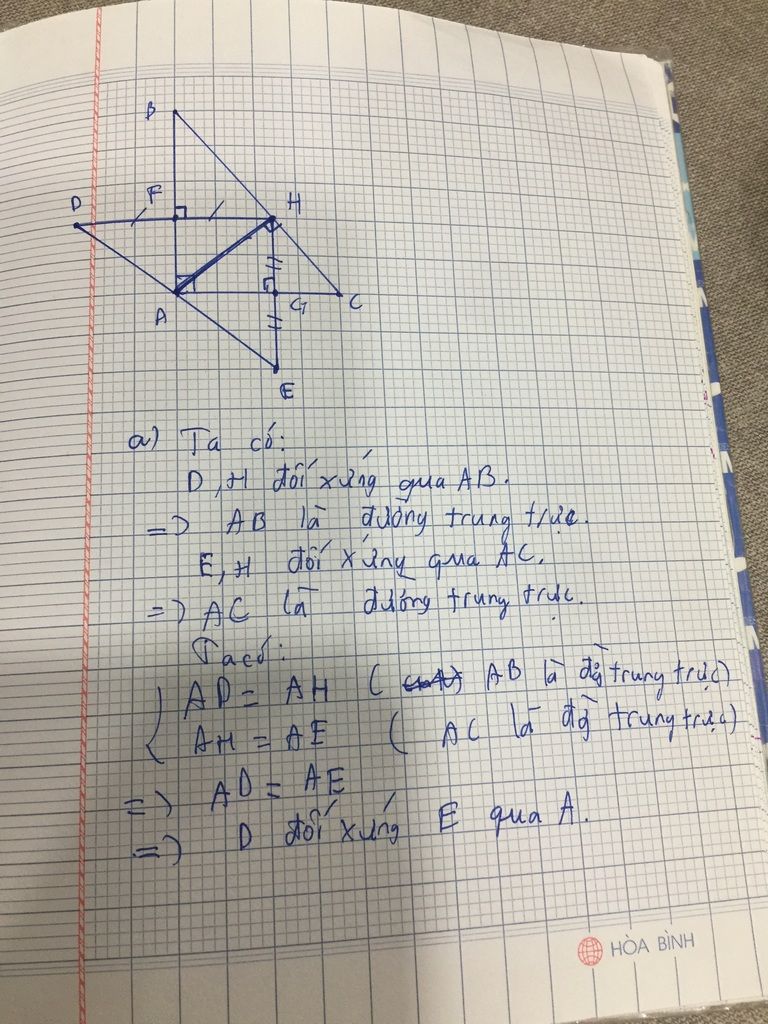 B
D
F
H
A
G
C
E
a) Ta có:
D, H đối xứng qua AB.
=> AB là đường trung trực.
E, H đối xứng qua AC.
=> AC là đường trung trực.
Ta có:
AD = AH ( AB là đg trung trực)
AH = AE ( AC là đg trung trực)
=> AD = AE
=> D đối xứng E qua A.
HÒA BÌNH